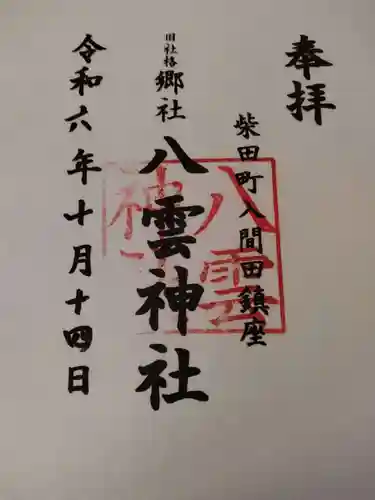 奉拝
柴田町入間田鎮座
旧社格 郷社
八雲神社
八雲
神社
令和六年十月十四日